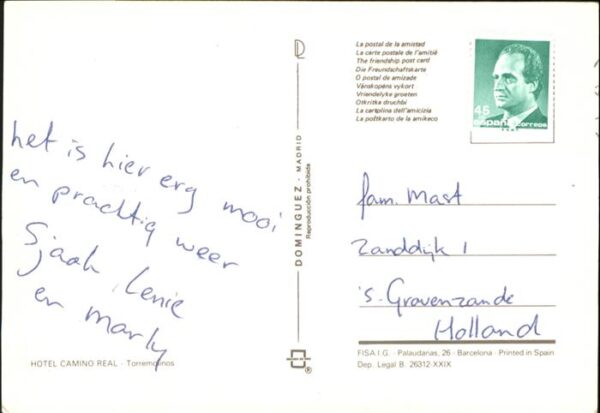 La postal de la amistad
La carte postale de l'amitié
The friendship post card
Die Freundschaftskarte
O postal de amizade
Vänskapens vykort
Vriendelyke groeten
Otkritka druchbi
La cartolina dell'amicizia
La poŝtkarto de la amikeco
45
españa correos
het is hier erg mooi
en prachtig weer
Sjaak, Lenie
en Marly
HOTEL CAMINO REAL - Torremolinos
DOMINGUEZ - MADRID
Reproducción prohibida
fam. Mast
Zanddijk 1
's-Gravenzande
Holland
FISA I.G. - Palaudarias, 26 - Barcelona - Printed in Spain
Dep. Legal B. 26312-XXIX